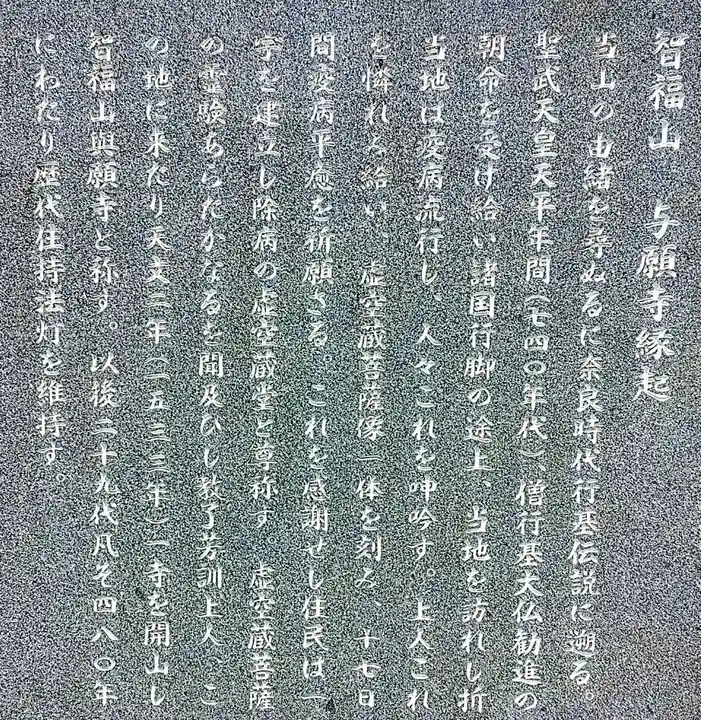 智福山　与願寺縁起
当山の由緒を尋ぬるに奈良時代行基伝説に遡る。
聖武天皇天平年間(七四〇年代)、僧行基大仏勧進の
朝命を受け給い諸国行脚の途上、当地を訪れし折
当地は疫病流行し、人々これを呻吟す。上人これ
を憐れみ給い、虚空蔵菩薩像一体を刻み、十七日
間疫病平癒を祈願さる。これを感謝せし住民は一
宇を建立し除病の虚空蔵堂と尊称す　虚空蔵菩薩
の霊験あらたかなるを聞及びし教了芳訓上人、こ
の地に来たり天文二年(一五三三年)一寺を開山し
智福山與願寺と称す。以後二十九代凡そ四八〇年
にわたり歴代住持法灯を維持す。